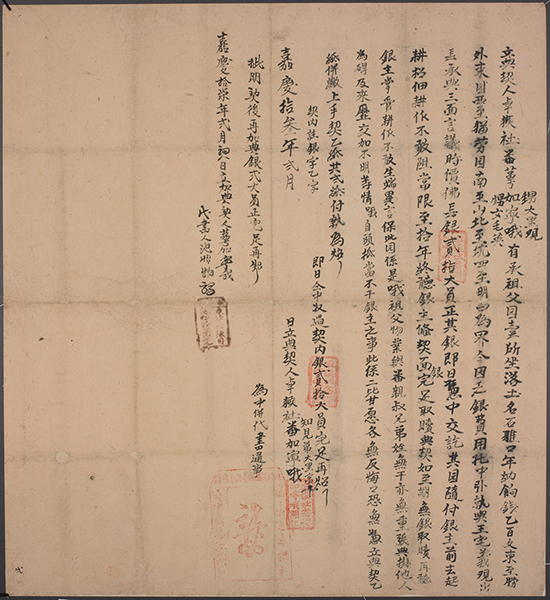 立典契人卓猴社番蔓加寅哦有承祖父田壹所坐落土名石雅口年納餉錢乙百文東至勝
甥大里現
甥女毛孩
外來園西至猫勞園南至山北至坑四至明白為界今因乏銀費用托中引就典王宅義現出
承典三面言議時價佛艮銀貳拾大員正其銀即日憑中交訖其田隨付銀主前去起
耕招佃耕作不敢阻當限至拾年終聽銀主備契面銀完足取贖典契如至期無銀取贖再聽
銀主掌管耕作不敢生端異言保此田係是哦祖父物業與番親叔兄弟姪無干亦無重張典掛他人
為碍及來歷交加不明等情哦自頭抵當不干銀主之事此係二比甘愿各無反悔口恐無憑立典契乙
紙併繳上手契乙紙共弍紙付執為炤
即日仝中收過契內銀貳拾大員完足再炤
契內註銀字乙字
知見弟大里寅
嘉慶拾叁年弍月 日立典契人卓猴社番加寅哦
為中併代書通事
批明契後再加典銀弍大員正完足再炤
嘉慶拾柒年弍月初八日立加典契人
代書人